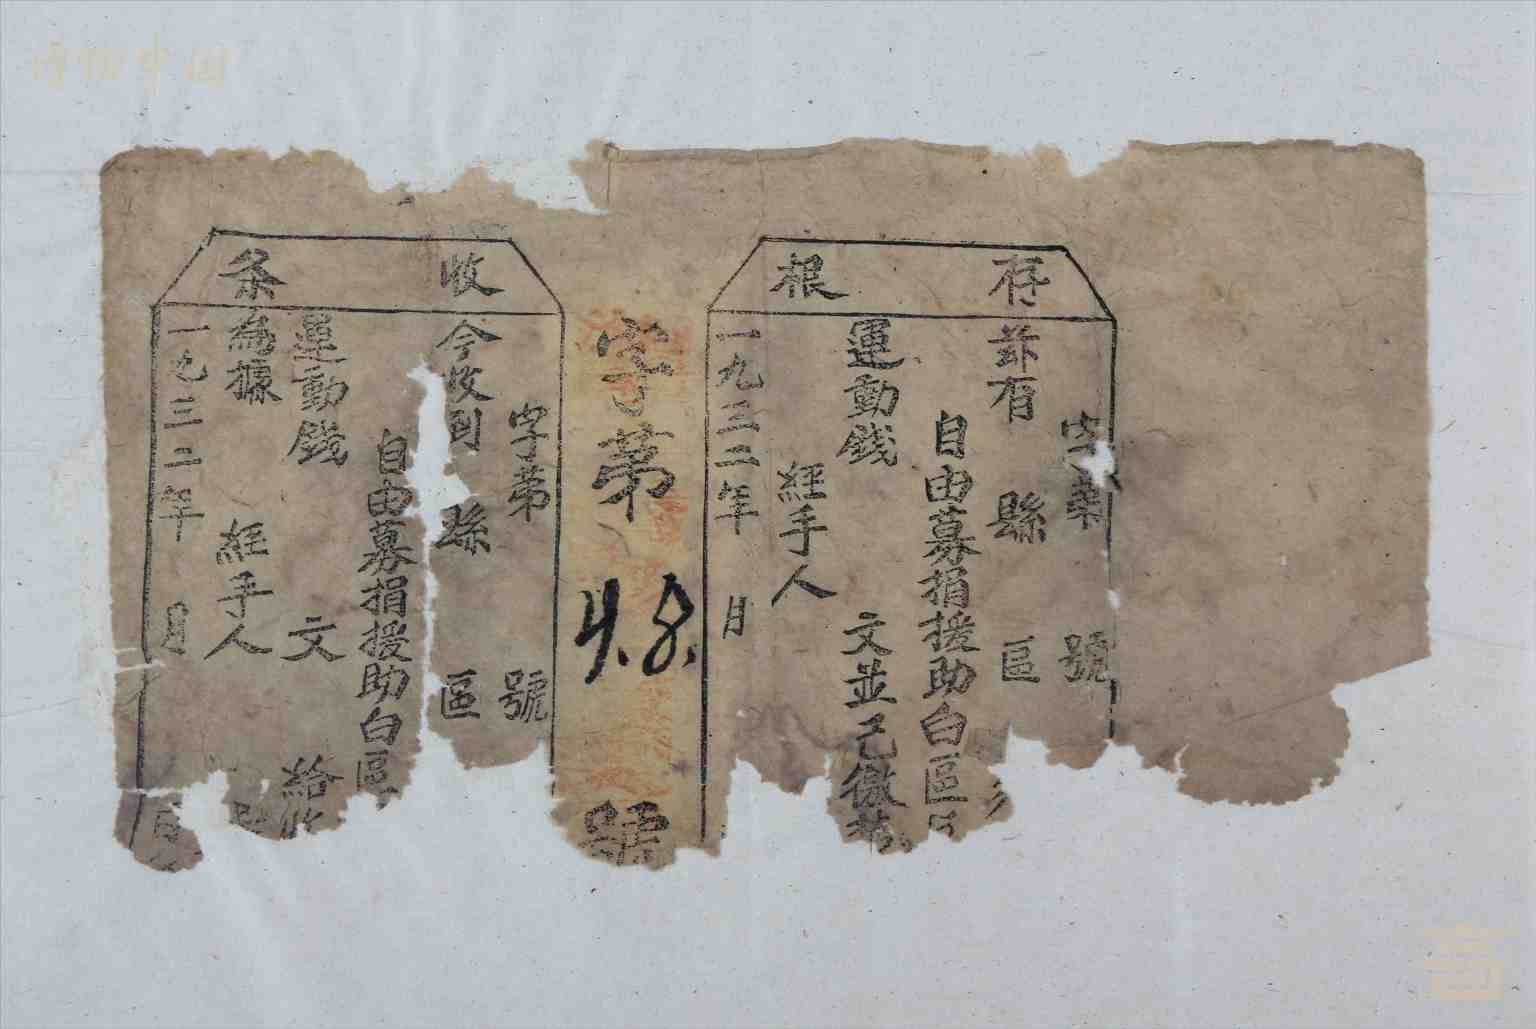 存根
字第 號
茲有 縣 區
自由募捐援助白區
運動錢 文並已徵
經手人
一九三二年 月
字第 48. 號
收条
字第 號
今收到 縣 區
自由募捐援助白區
運動錢 文 給
為據 經手人
一九三二年 月 日